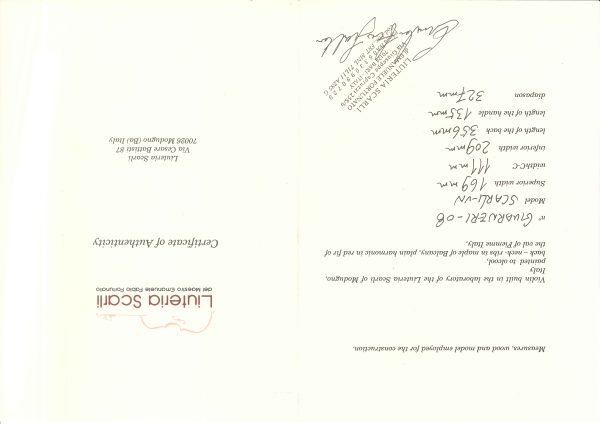 Liuteria Scarli
del Maestro Emanuele Fabio Fortunato
Certificate of Authenticity
Liuteria Scarli
Via Cesare Battisti 87
70026 Modugno (Ba) Italy
Measures, wood and model employed for the construction.
Violin built in the laboratory of the Liuteria Scarli of Modugno,
Italy
painted to olcool,
back – neck- ribs in maple of Balcany, plain harmonic in red fir of
the val of Fiemme Italy,
n° GUARNERI-08
Model SCARLI-VN
Superior width 169 mm
widthC-C 111 mm
inferior width 209 mm
length of the back 356 mm
length of the handle 135 mm
diapason 327 mm
LIUTERIA SCARLI